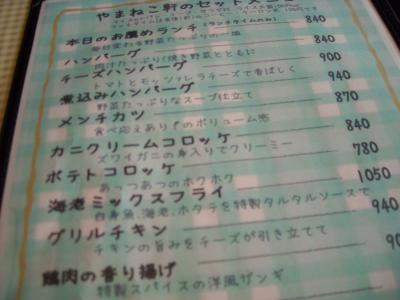 やまねこ軒のセット
本日のお薦めランチ（ランチタイムのみ） 840
毎日変わる野菜たっぷりの一皿
ハンバーグ 840
肉汁たっぷり！焼き野菜とともに
チーズハンバーグ 900
トマトとモッツァレラチーズで香ばしく
煮込みハンバーグ 940
野菜たっぷりなスープ仕立て
メンチカツ 870
食べ応えあり！のボリューム感
カニクリームコロッケ 840
ズワイガニの身入りでクリーミー
ポテトコロッケ 780
あっつあつのホクホク
海老ミックスフライ 1050
白身魚、海老、ホタテを特製タルタルソースで
グリルチキン 940
チキンの旨みをチーズが引き立てて
鶏肉の香り揚げ
特製スパイスの洋風ザンギ